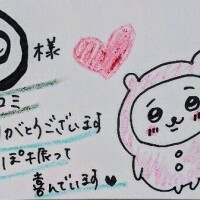 様
コミ
りがとうございます
ぽ振って
喜んでいます♥